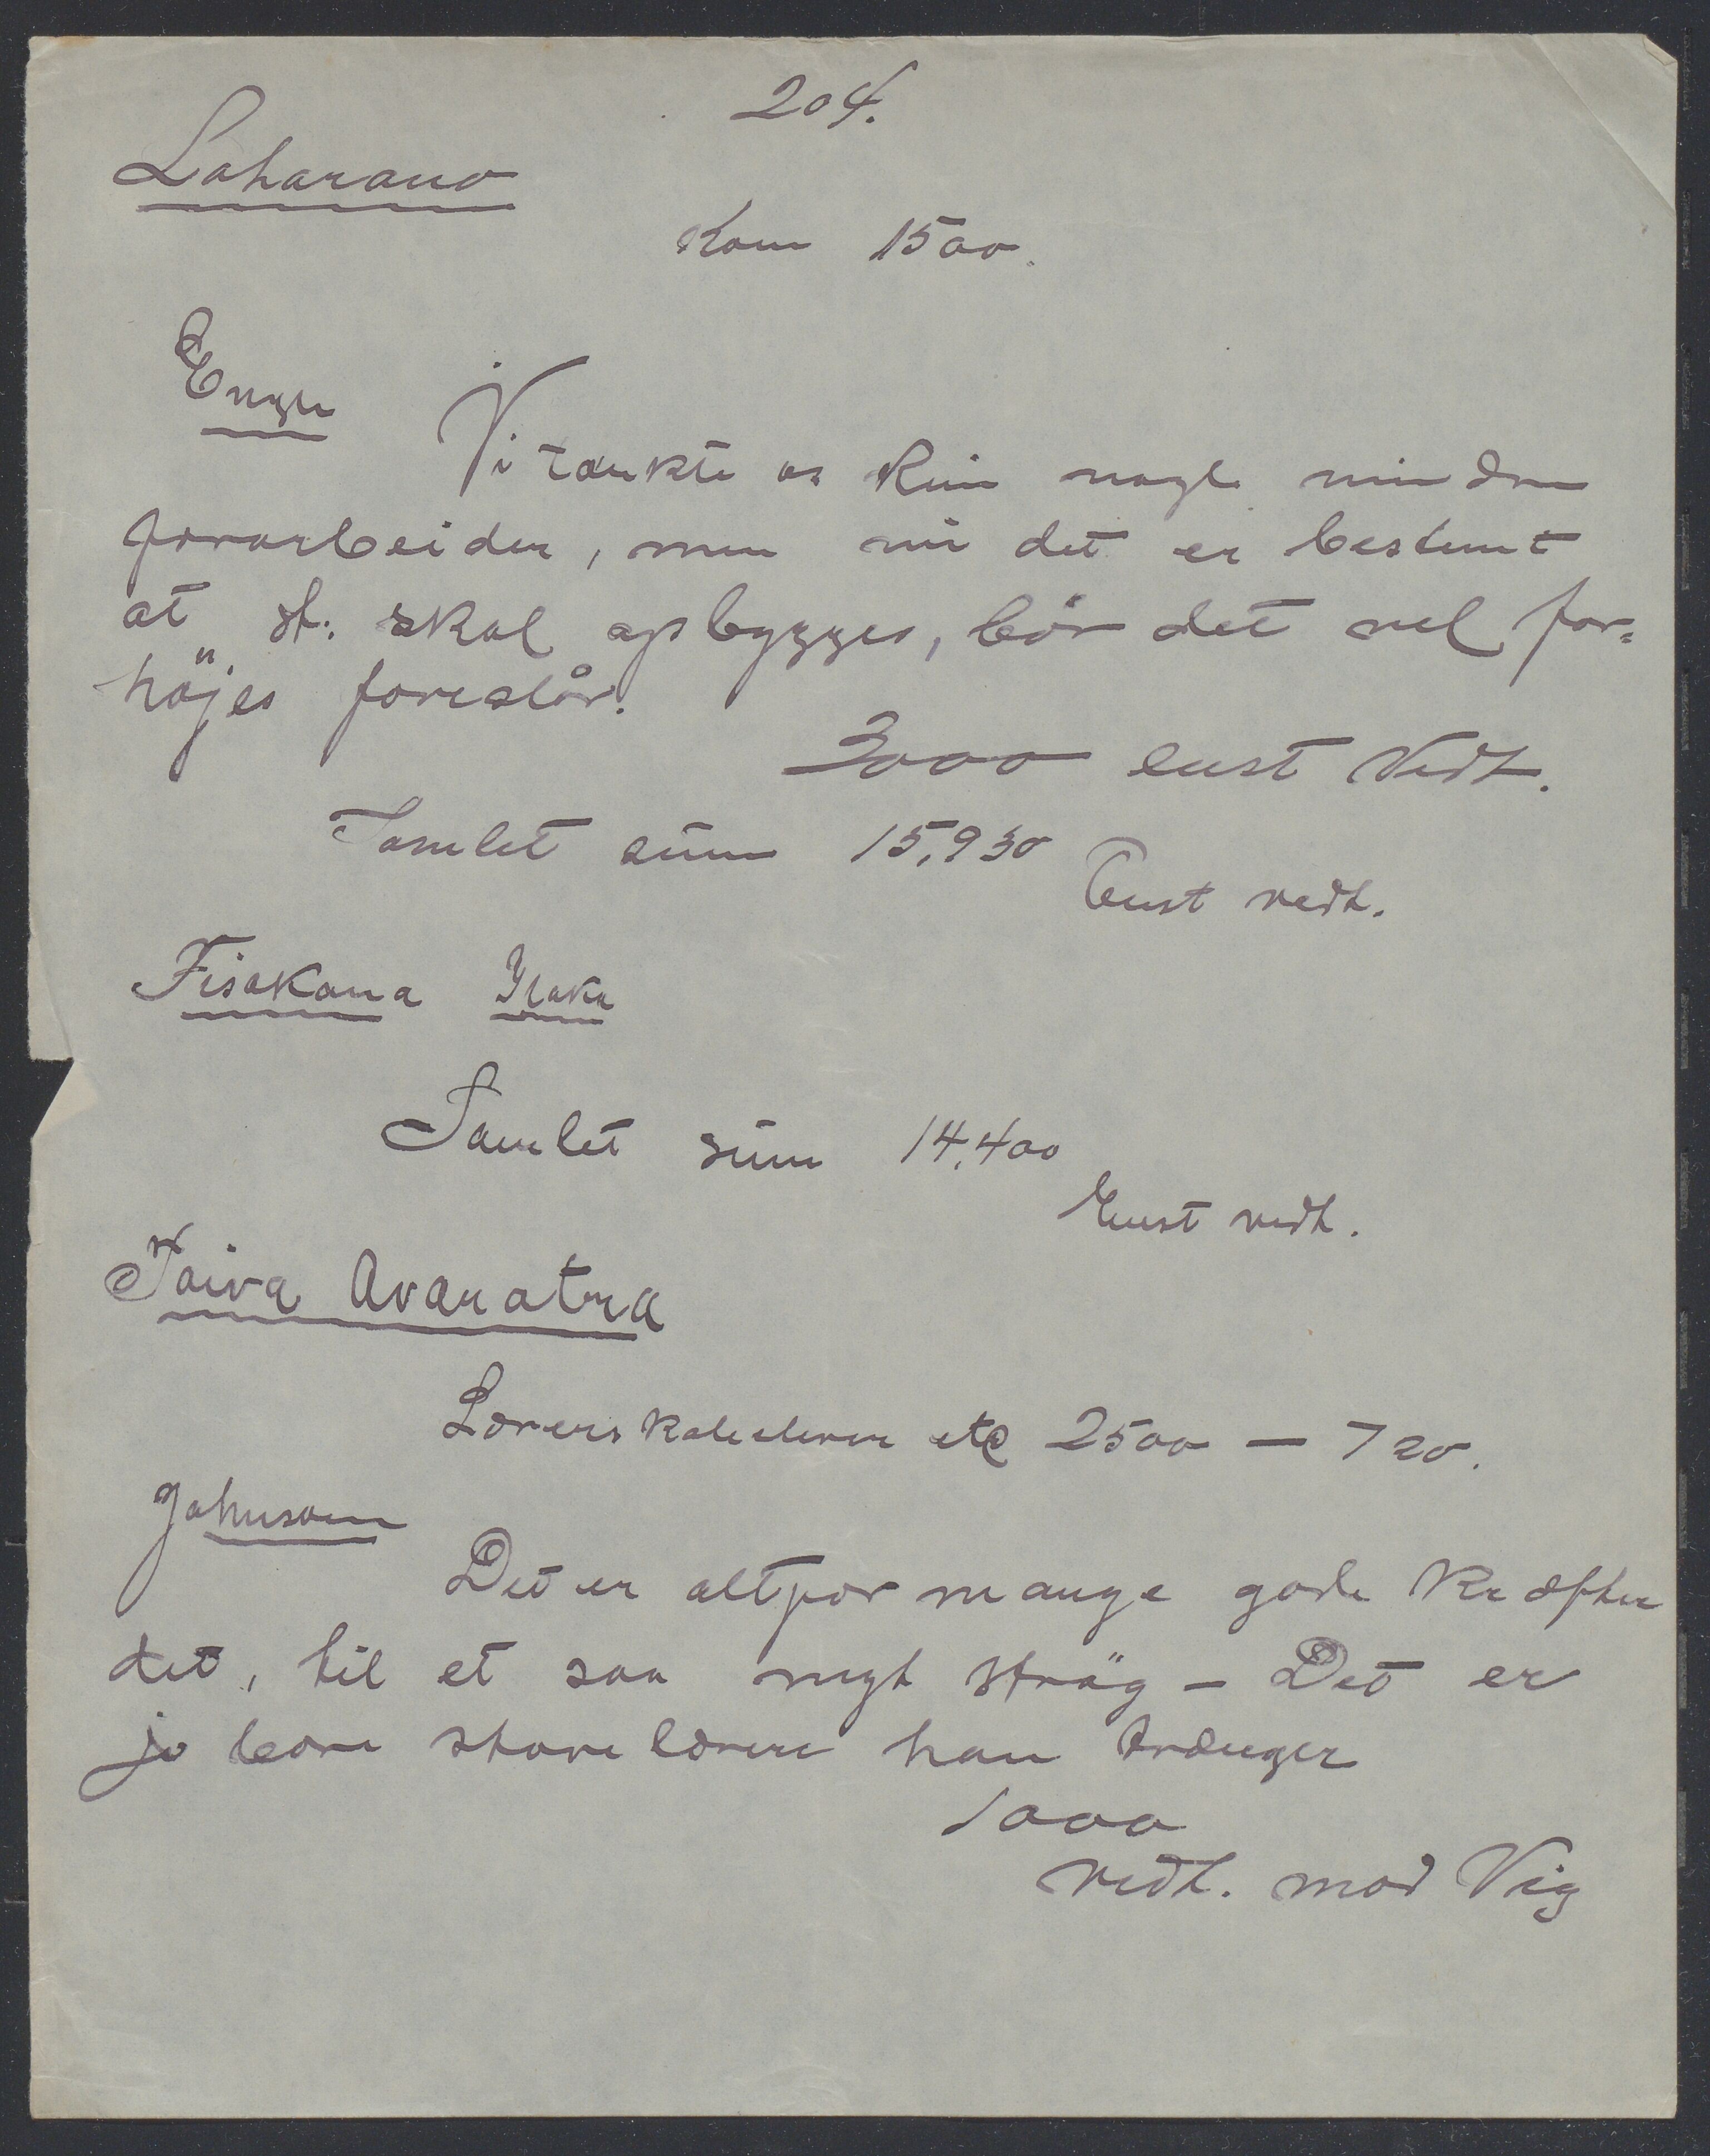 204.
Loharano
Kom 1500.
Enge
Vi tænkte os kun nogle mindre
forarbeider, men nu det er bestemt
at st. skal opbygges, bör det vel for=
höjes foreslår.
3000 enst Vedt.
Samlet sum 15,930
Enst vedt.
Fisakana Ilaka
Samlet sum 14,400
Enst vedt.
Soiva Avaratra
Lærerskoleelever etc 2500 – 720.
Johnson
Det er altfor mange gode Kræfter
det, til et saa nygt strög – Det er
jo bare store lærere han trænger
1000
vedt. mod Vig